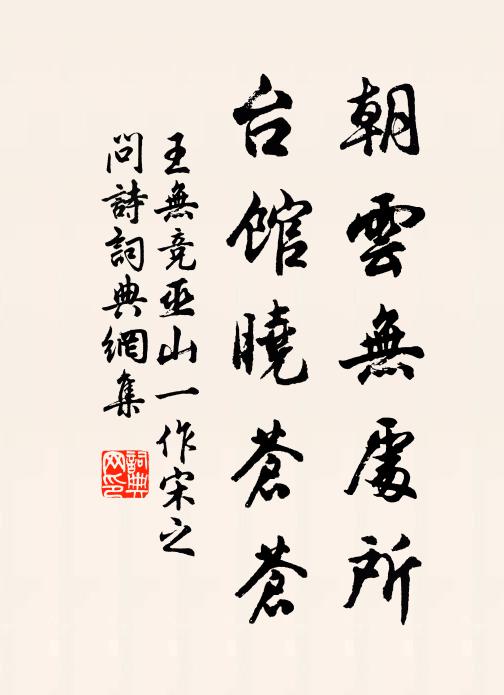 朝雲無處所
台館曉蒼蒼
王無竞巫山一作宋之
問詩詞典網集
詞典
网印